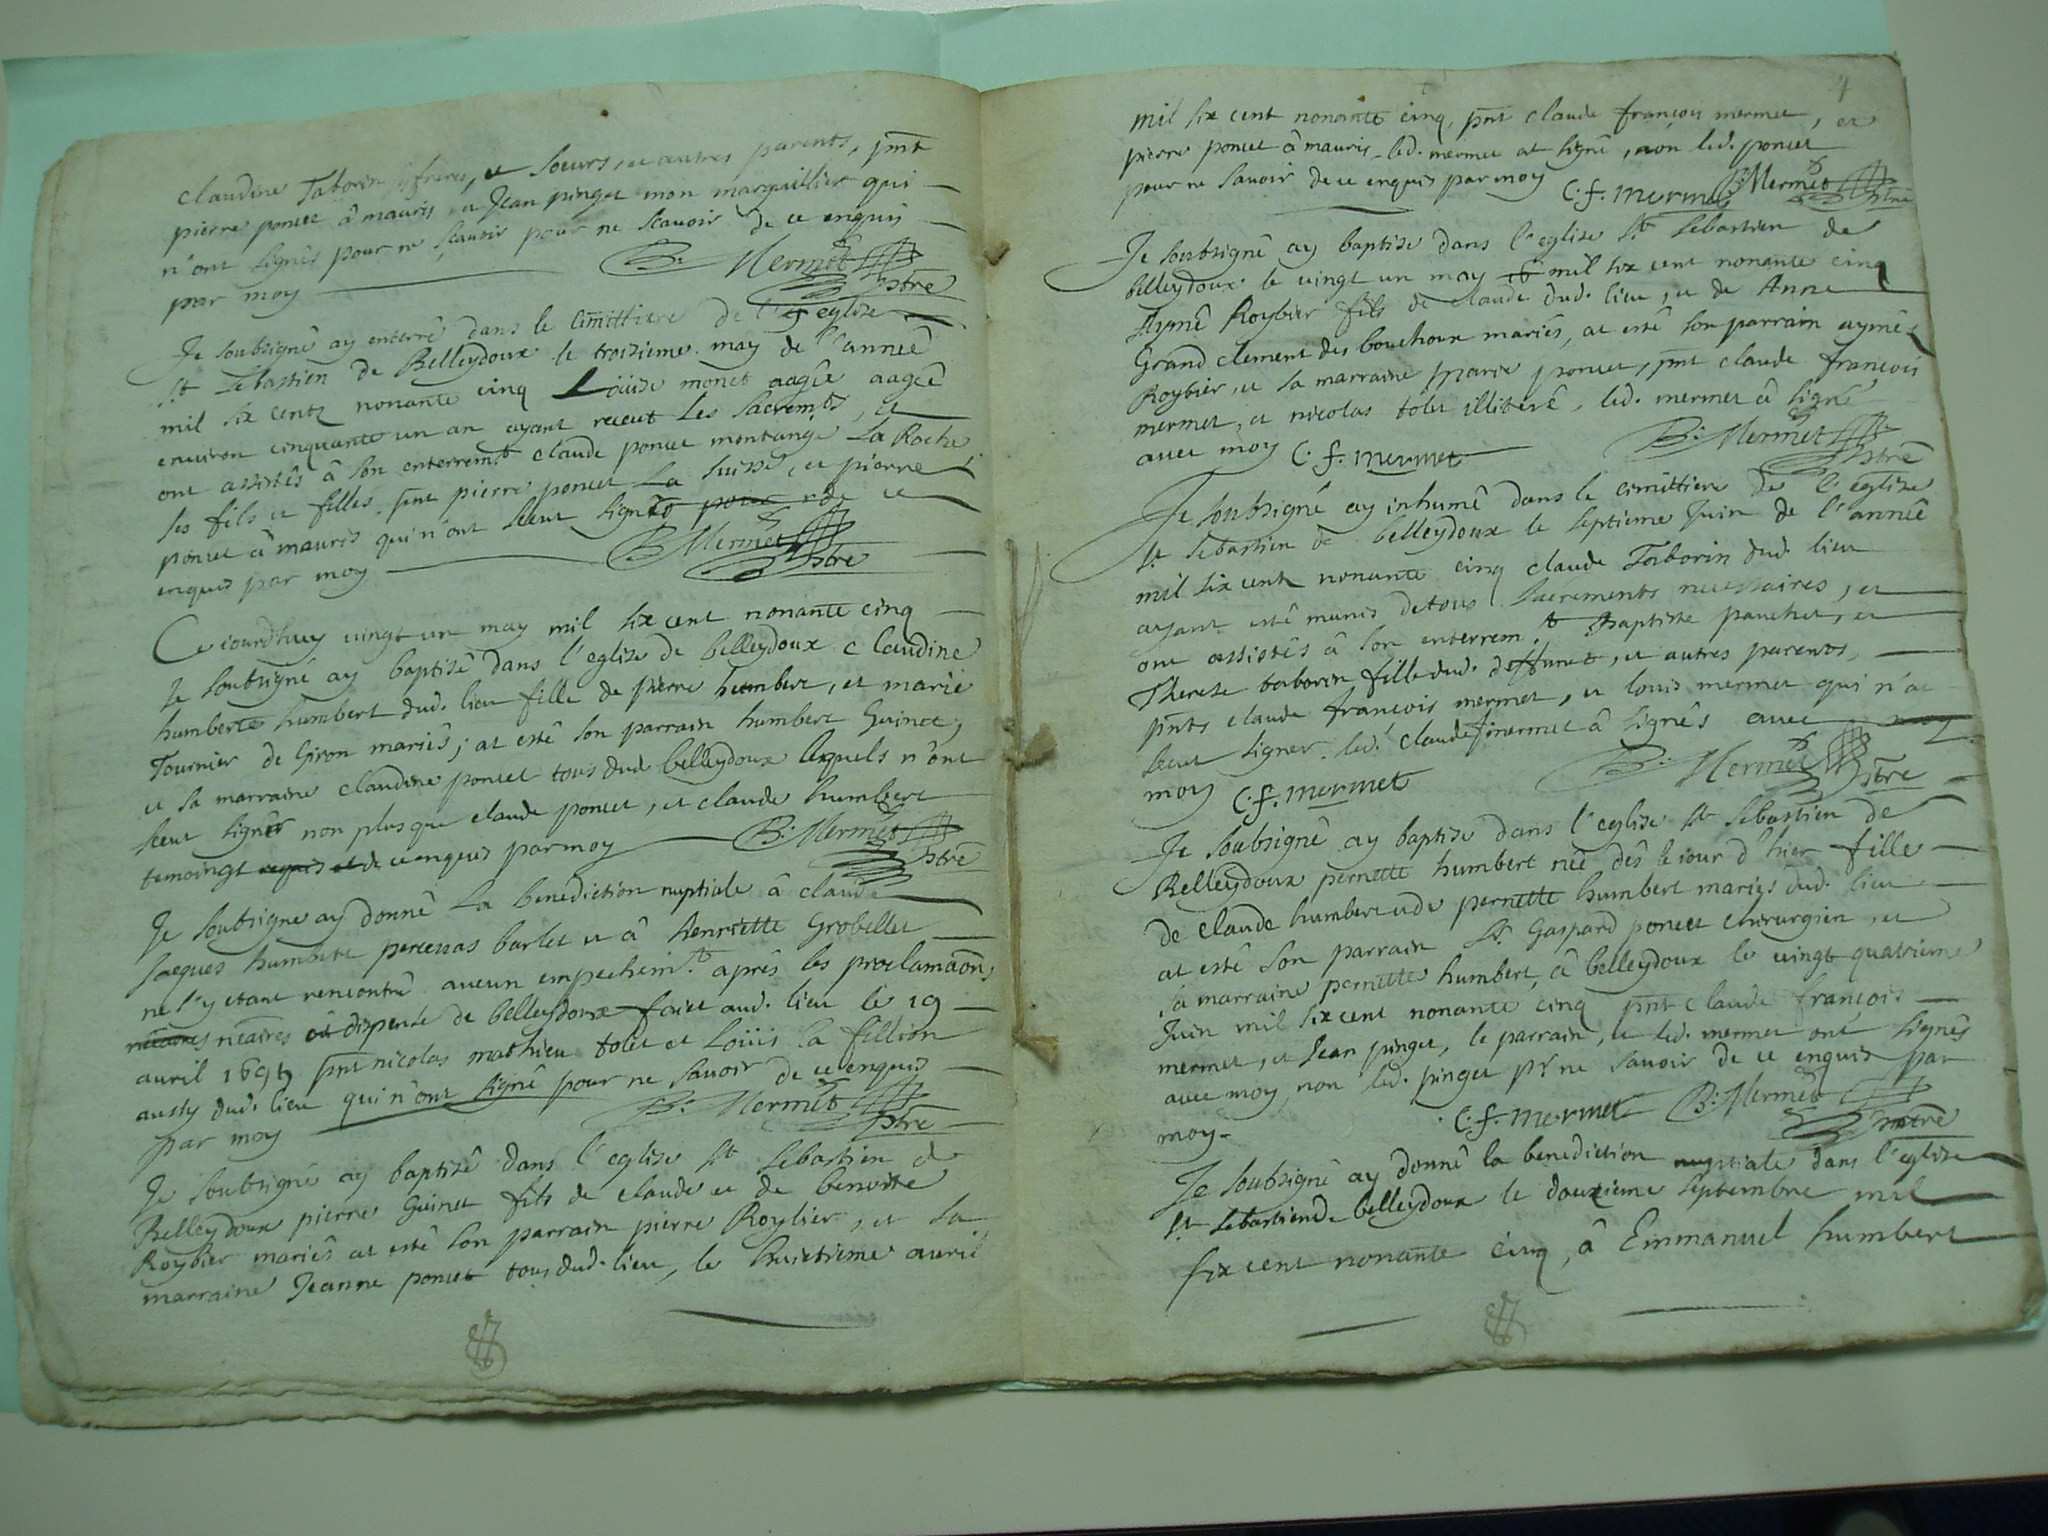 claudine Taborin frere, et soeurs, et autres parents, pnt
pierre poncet â mauris et Jean pinget mon marguillier qui
n'ont signés pour ne sçavoir pour ne scavoir de ce enquis
par moy B. Mermet ptre
Je soubsigné ay enterré dans le cimittiere de l'eglise
st Sebastien de Belleydoux le troisieme may de l'année
mil six centz nonante cinq Loüise monet aagée aagée
environ cinquante un an ayant receut les sacremts, et
ont assistés â son enterremt. claude poncet montange la Roche,
ses fils et filles, pnt pierre poncet La suisse, et pierre
poncet â mauris qui n'ont sceut signer pour de ce
enquis par moy B. Mermet ptre
Ce iourdhuy vingt un may mil six cent nonante cinq
Je soubsigné ay baptisé dans l'eglise de belleydoux claudine
humberte humbert dud. lieu fille de pierre humbert, et marie
Tournier de Giron mariés; at esté son parrain humbert Guinet,
et sa marraine claudine poncet tous dud. belleydoux lesquels n'ont
sceut signer non plus que claude poncet, et claude humbert
temoingt requis et de ce enquis par moy B. Mermet ptre
Je soubsigne ay donné la benediction nuptiale â claude
Jacques humbert percevas burlet et â henriette Grobellet
ne s'y etant rencontré aucun empechemt. aprés les proclamaôns
nécaires nécaires et dispense de belleydoux faite aud. lieu le 19
avril 1695 pnt nicolas mathieu tolet et Loüis la fillion
austy dud. lieu qui n'ont signé pour ne savoir de ce enquis
par moy B. Mermet ptre
Je soubsigné ay baptisé dans l'eglise st Sebastien de
Belleydoux pierre Guinet fils de claude et de benoitte
Roybier mariés at esté son parrain pierre Roybier, et sa
marraine Jeanne poncet tous dud. lieu, le huictieme avril
4
mil six cent nonante cinq, pnt claude françois mermet, et
pierre poncet â mauris led. mermet at signé, non led. poncet
pour ne savoir de ce enquis par moy C. f. mermet B. Mermet ptre
Je soubsigné ay baptisé dans l'eglise st Sebastien de
belleydoux le vingt un may mil six cent nonante cinq
Aymé Roybier fils de claude dud. lieu, et de Anne
Grand clement des bouchoux mariés, at esté son parrain aymé
Roybier, et sa marraine marie poncet, pnt claude françois
mermet, et nicolas tolet illiteré, led. mermet â signé
avec moy C. f. mermet B. Mermet ptre
Je soubsigné ay inhumé dans le cimittiere de l'eglise
st Sebastien de belleydoux le septieme Juin de l'année
mil six cent nonante cinq claude Taborin dud. lieu
ayant esté munis de tous sacrements necessaires, et
ont assistés â son enterremt. Baptiste panchet, et
Therese taborin fille dud. deffunct, et autres parents,
pnts claude françois mermet, et louis mermet qui n'at
sceut signer, led. claude f. mermet â signés avec
moy C. f. mermet B. Mermet ptre
Je soubsigné ay baptisé dans l'eglise st Sebastien de
Belleydoux pernette humbert née dés le iour d'hier fille
de claude humbert et de pernette humbert mariés dud. lieu
at esté son parrain Sr. Gaspard poncet chirurgien, et
sa marraine pernette humbert, â belleydoux le vingt quatrieme
Juin mil six cent nonante cinq pnt claude françois
mermet, et Jean pinget, le parrain, et led. mermet ont signés
avec moy, non led. pinget pr ne savoir de ce enquis par
moy. C. f. mermet B. Mermet ptre
Je soubsigné ay donné la benediction nuptiale dans l'eglise
st Sebastien de belleydoux le douzieme septembre mil
six cent nonante cinq, â Emmanuel humbert